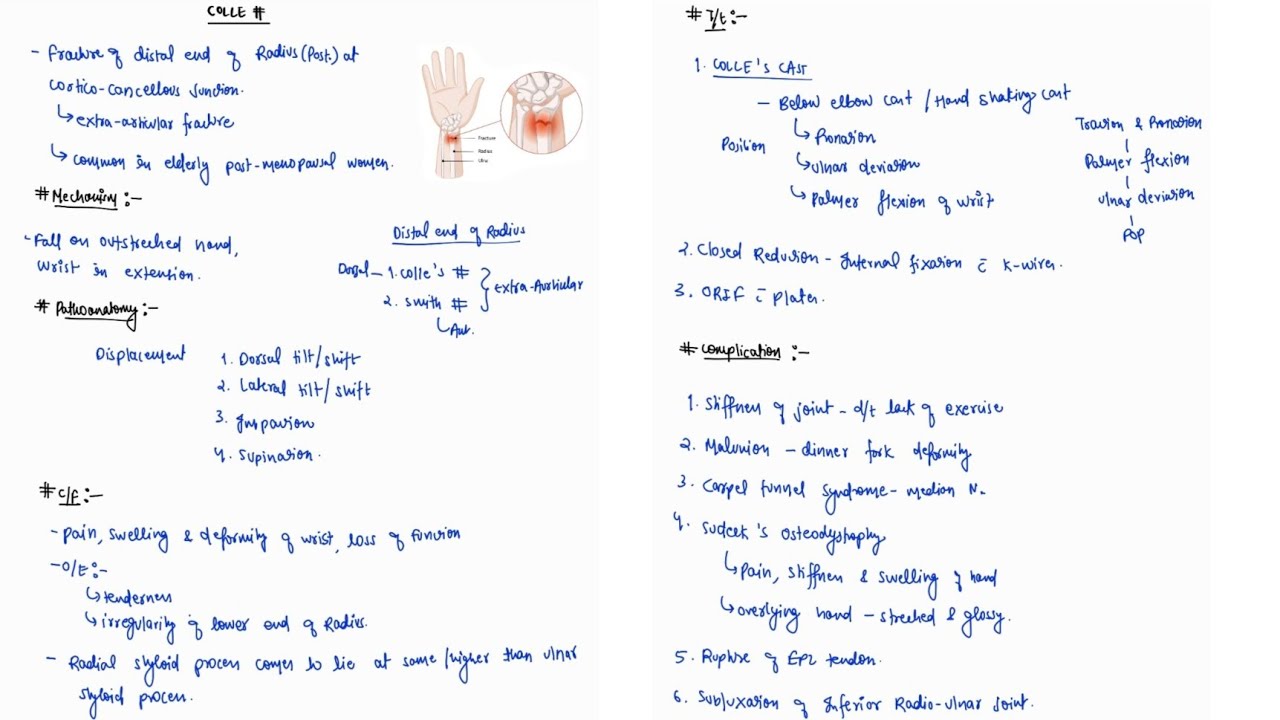 COLLE #
- Fracture of distal end of Radius (Post.) at
cortico-cancellous Junction.
↳ extra-articular fracture
↳ common in elderly post-menopausal women.
Fracture
Radius
Ulna
# Mechanism :-
- Fall on outstreched hand,
wrist in extension.
Distal end of Radius
Dorsal - 1. Colle's #
2. Smith #
extra-Auricular
↳ Ant.
# Pathoanatomy :-
Displacement
1. Dorsal tilt/shift
2. Lateral tilt/shift
3. Impaction
4. Supination.
# C/F :-
- Pain, swelling & deformity of wrist, loss of function
- O/E :-
↳ tenderness
↳ irregularity of lower end of Radius.
- Radial styloid process comes to lie at same/higher than ulnar
styloid process.
# T/t :-
1. COLLE'S CAST
- Below elbow cast / Hand shaking cast
Position
↳ Pronation
↳ ulnar deviation
↳ Palmer flexion of wrist
Traction & Pronation
|
Palmer flexion
|
ulnar deviation
|
POP
2. Closed Reduction - Internal fixation c̄ K-wires.
3. ORIF c̄ plates.
# Complication :-
1. Stiffness of joint - d/t lack of exercise
2. Malunion - dinner fork deformity
3. Carpel tunnel syndrome - median N.
4. Sudeck's Osteodystrophy
↳ Pain, stiffness & swelling of hand
↳ overlying hand - streched & glossy.
5. Rupture of EPL tendon.
6. Subluxation of Inferior Radio-ulnar joint.